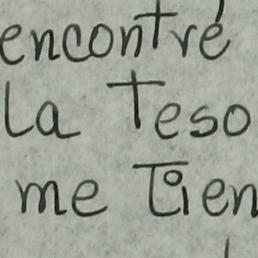 encontré
la Teso
me Tien